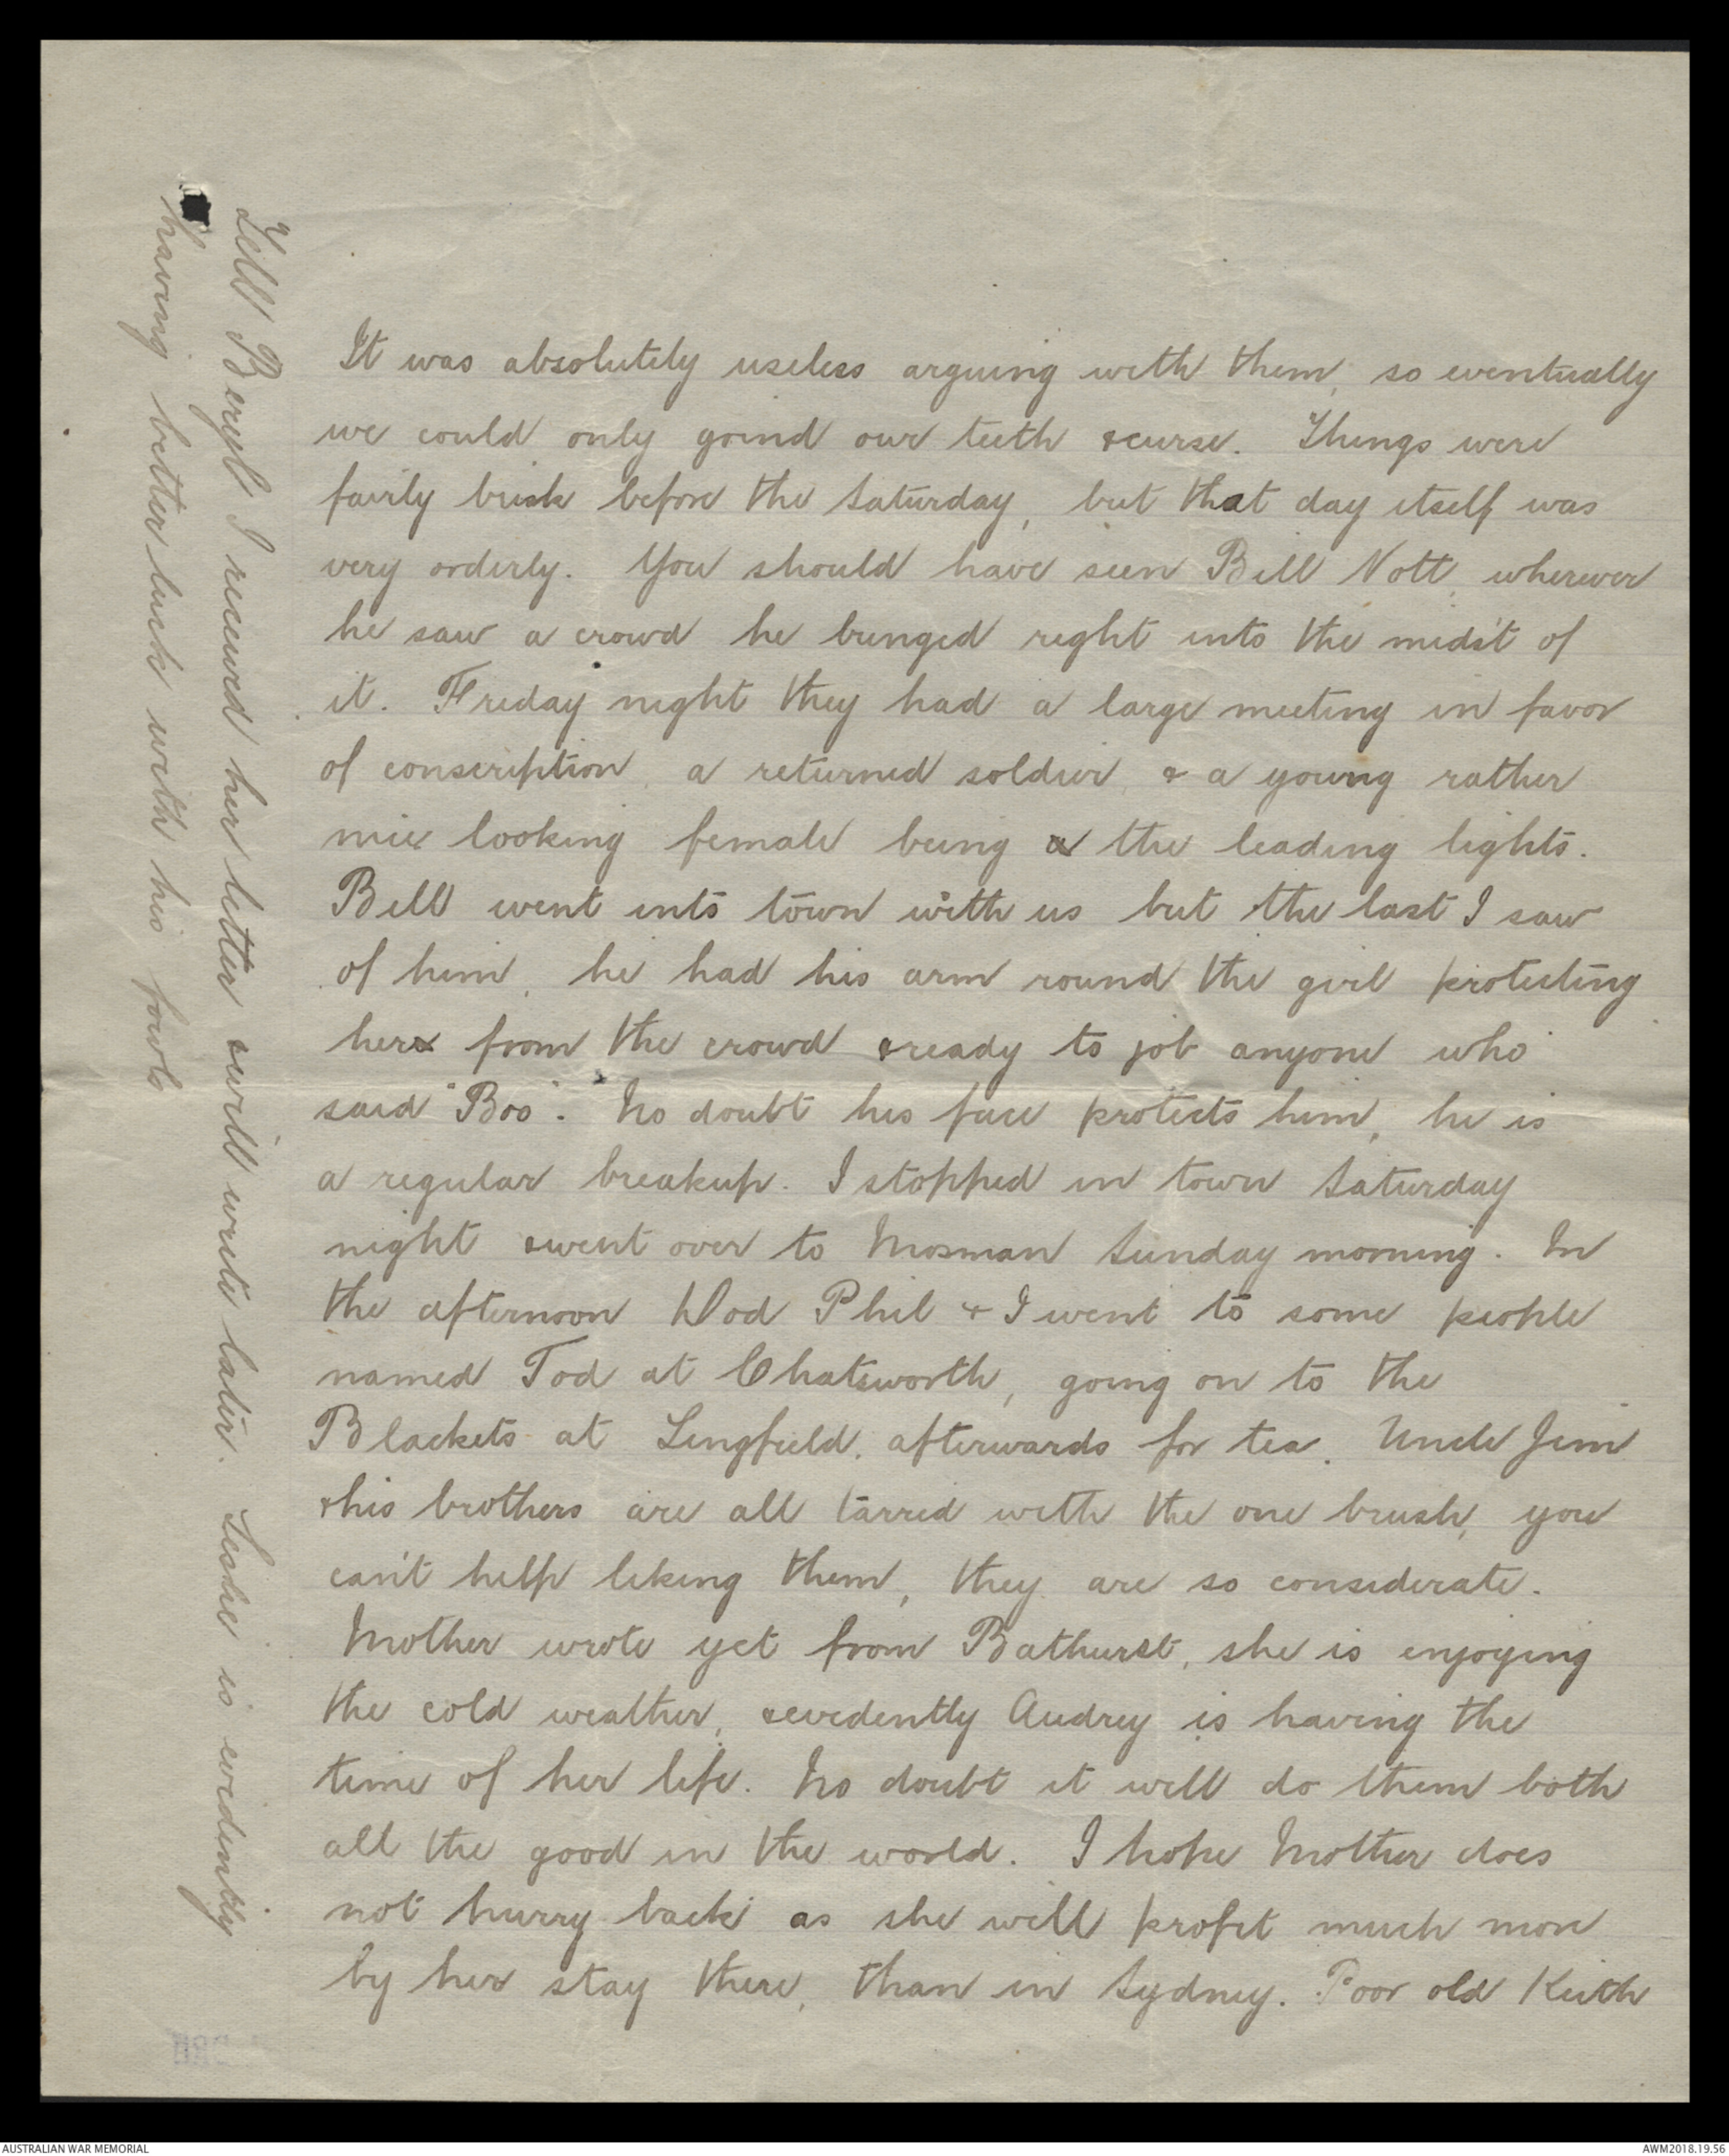 It was absolutely useless arguing with them, so eventually
we could only grind our teeth & curse. Things were
fairly brisk before the Saturday, but that day itself was
very orderly. You should have seen Bill Nott, wherever
he saw a crowd he bunged right into the midst of
it. Friday night they had a large meeting in favor
of conscription, a returned soldier, & a young rather
nice looking female being the leading lights.
Bill went into town with us but the last I saw
of him, he had his arm round the girl protecting
her from the crowd & ready to job anyone who
said "Boo". No doubt his face protects him, he is
a regular breakup. I stopped in town Saturday
night & went over to Mosman Sunday morning. In
the afternoon Dod Phil & I went to some people
named Tod at Chatsworth, going on to the
Blackets at Lingfield, afterwards for tea. Uncle Jim
& his brothers are all tarred with the one brush, you
can't help liking them, they are so considerate.
Mother wrote yet from Bathurst, she is enjoying
the cold weather, & evidently Audrey is having the
time of her life. No doubt it will do them both
all the good in the world. I hope Mother does
not hurry back as she will profit much more
by her stay there, than in Sydney. Poor old Keith
Tell Beryl I received her letter & will write later. Leslie is evidently
having better luck with his fowls
AUSTRALIAN WAR MEMORIAL
AWM2018.19.56